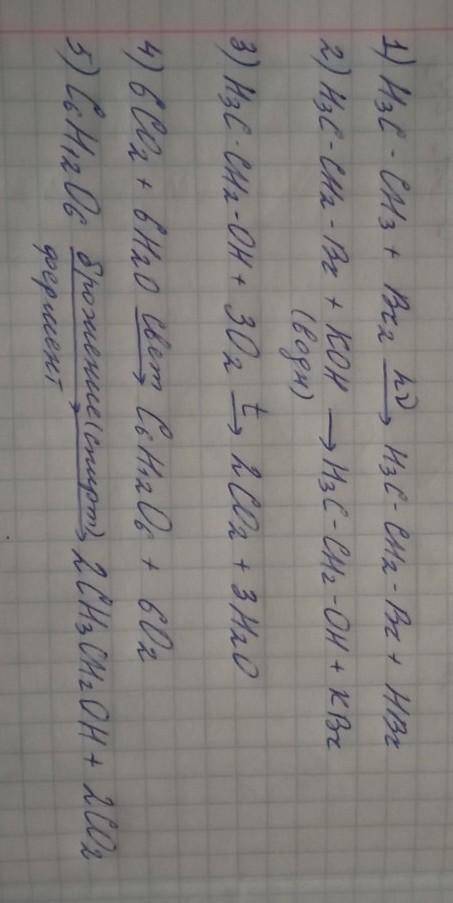 1) H3C - CH3 + Br2 hν → H3C - CH2 - Br + HBr
2) H3C - CH2 - Br + KOH → H3C - CH2 - OH + KBr
(водн)
3) H3C - CH2 - OH + 3O2 t → 2CO2 + 3H2O
4) 6CO2 + 6H2O свет → C6H12O6 + 6O2
5) C6H12O6 брожение (спирт) → 2CH3CH2OH + 2CO2
фермент